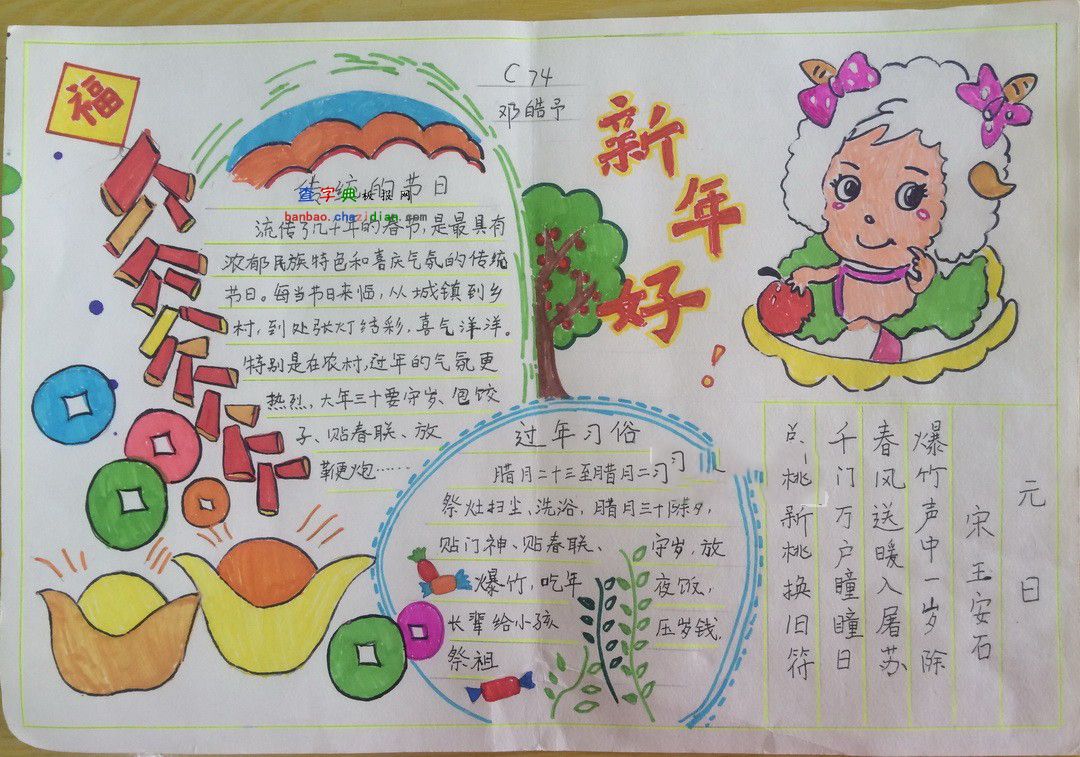 福
C 74
邓皓予
新年好！
传统的节日
查字典板报网
banbao.chazidian.com
流传了几十年的春节，是最具有
浓郁民族特色和喜庆气氛的传统
节日。每当节日来临，从城镇到乡
村，到处张灯结彩，喜气洋洋。
特别是在农村，过年的气氛更
热烈、大年三十要守岁、包饺
子、贴春联、放
鞭炮……
过年习俗
腊月二十三至腊月二习
祭灶扫尘、洗浴，腊月三十除夕，
贴门神、贴春联、守岁，放
爆竹，吃年夜饭，
长辈给小孩压岁钱，
祭祖
元日
宋 王安石
爆竹声中岁除
春风送暖入屠苏
千门万户瞳瞳日
总桃新桃换旧符